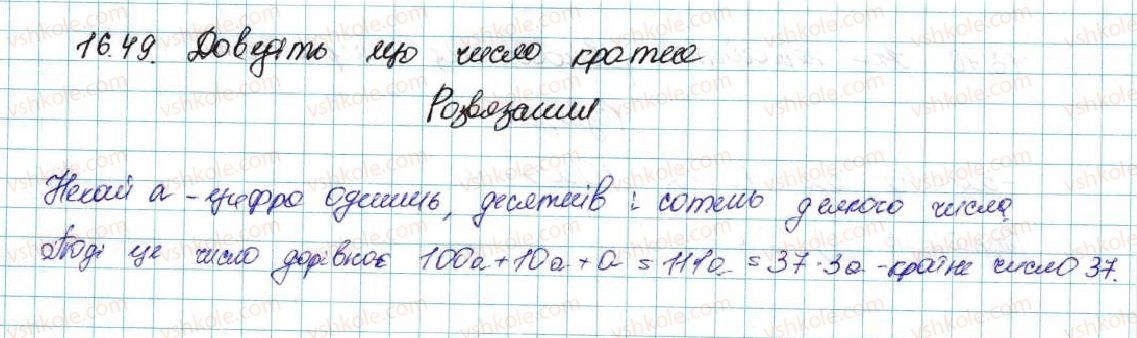 16.49. Доведіть що число кратне
Розвязання
Нехай a - цифра одиниць, десятків і сотень деякого числа,
Тоді це число дорівнює 100a + 10a + a = 111a = 37 · 3a - кратне число 37.